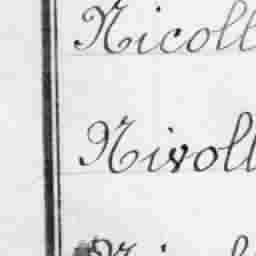 Nicoll
Nivoll